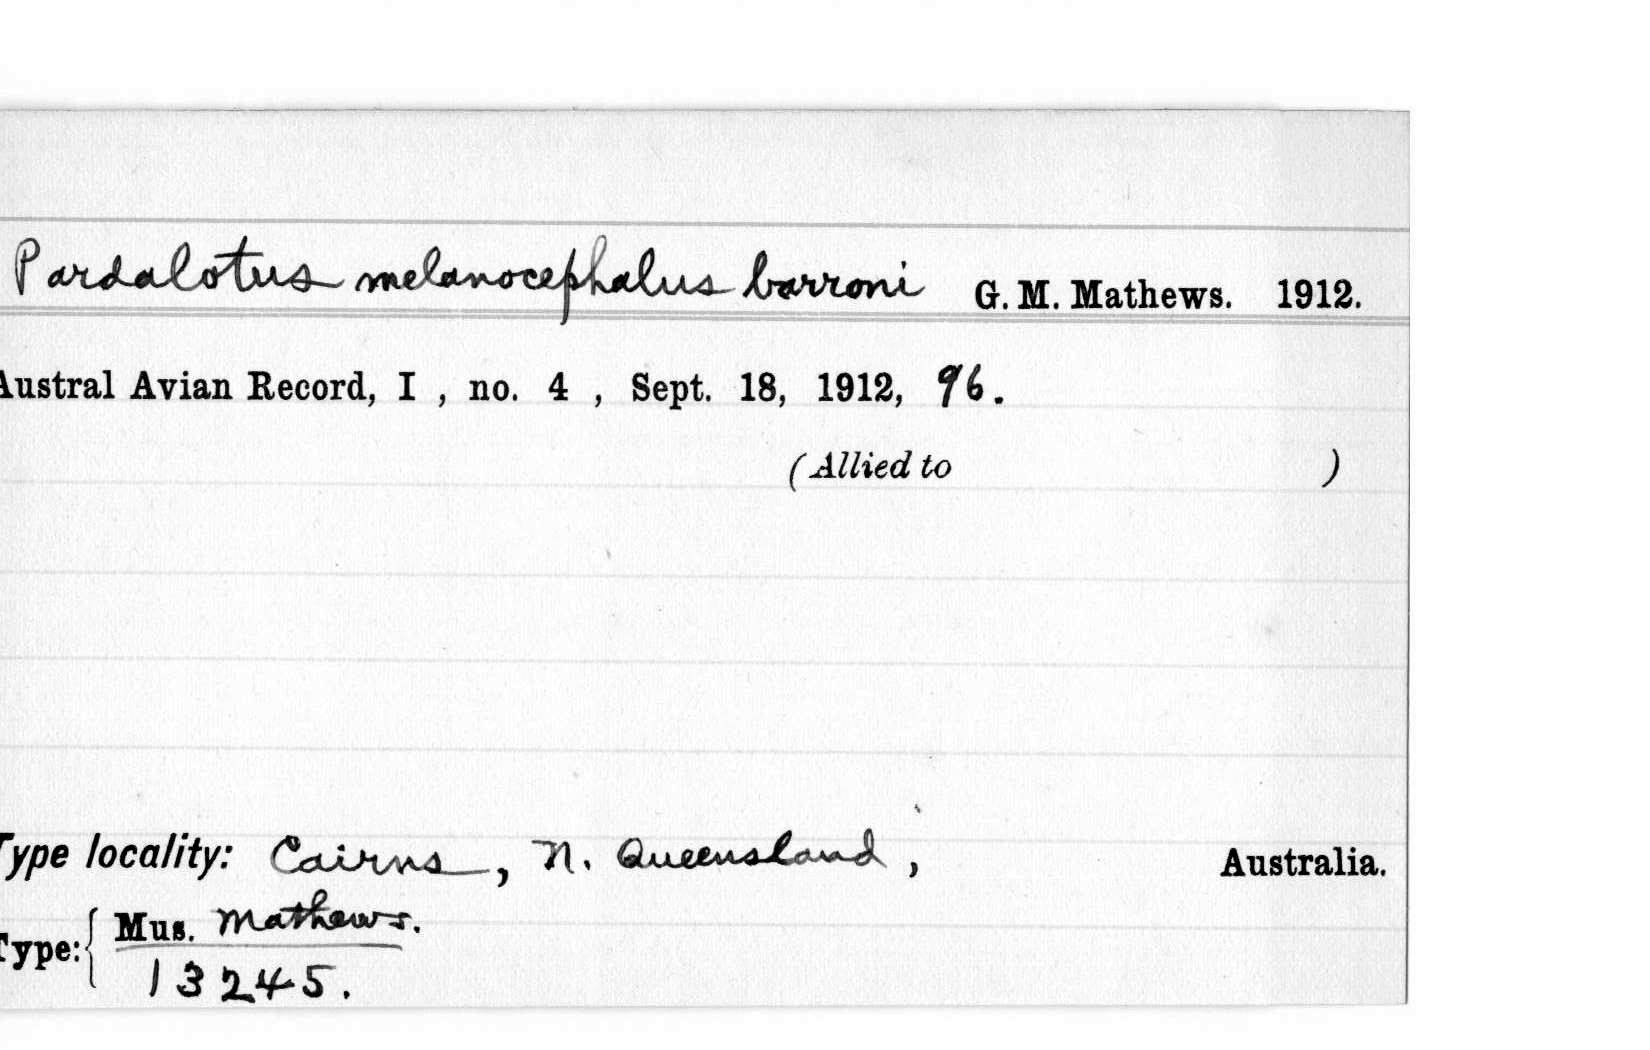 Pardalotus melanocephalus barroni G. M. Mathews. 1912.
Austral Avian Record, I , no. 4 , Sept. 18, 1912, 96.
(Allied to )
Type locality: Cairns, N. Queensland, Australia.
Type: { Mus. Mathews.
13245.